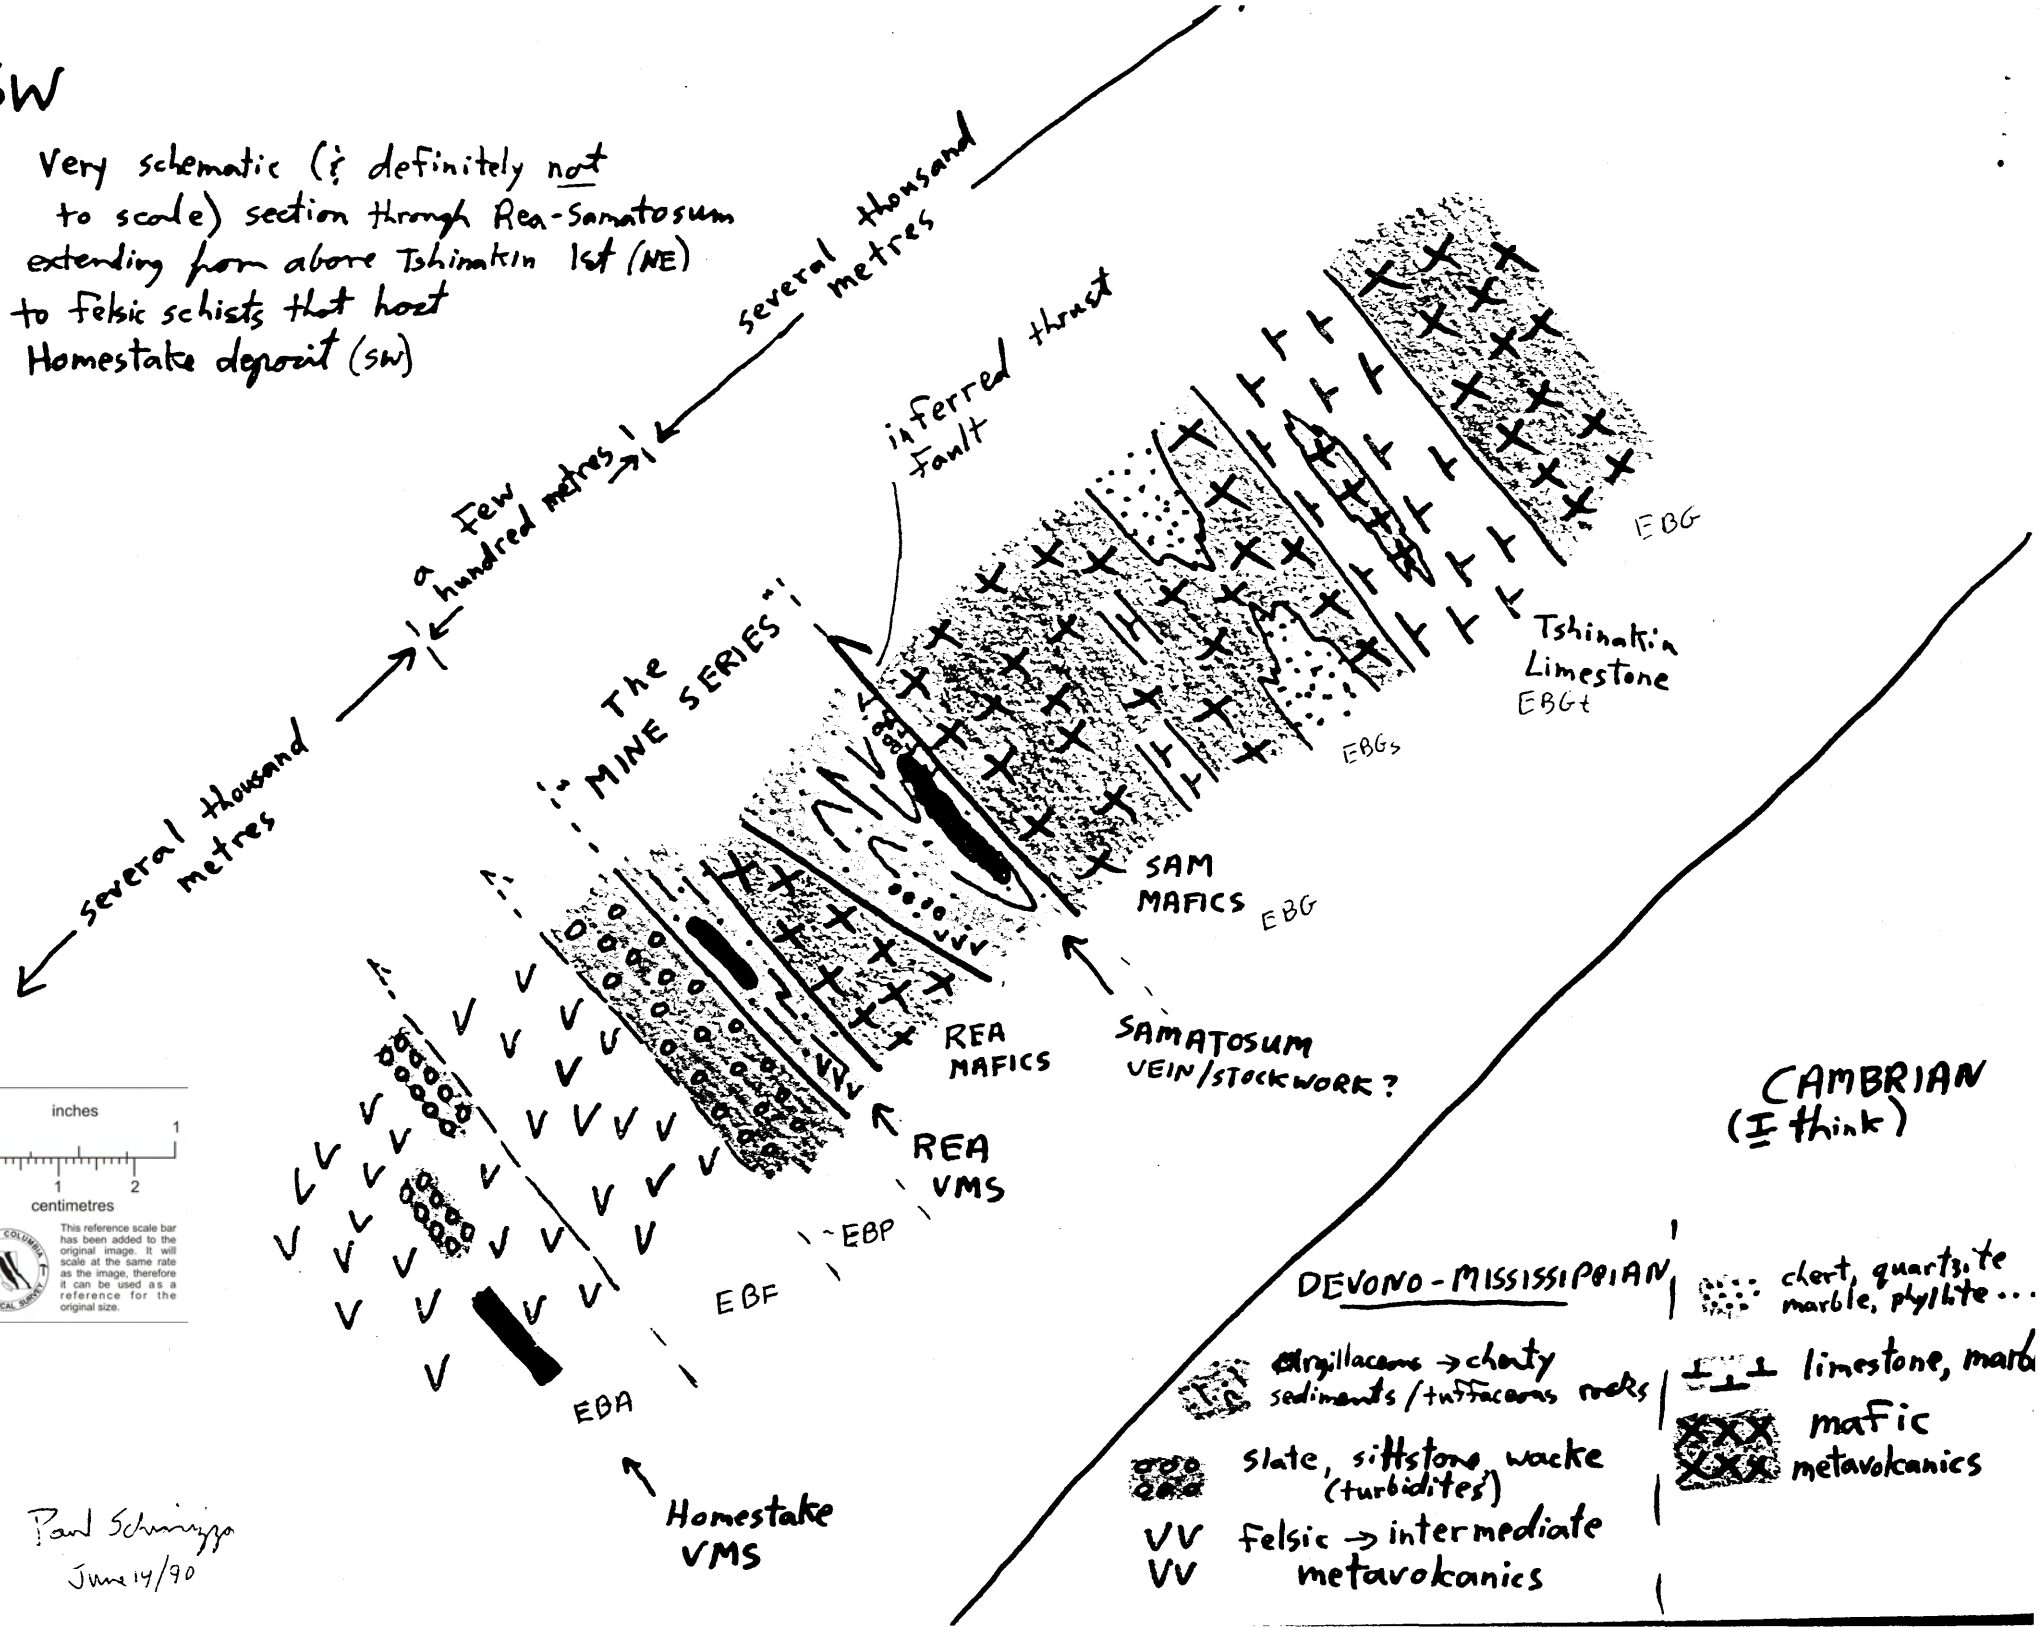 SW
Very schematic (& definitely not
to scale) section through Rea-Samatosum
extending from above Tshinakin lst (NE)
to felsic schists that host
Homestake deposit (SW)
several thousand
metres
a few
hundred metres
several thousand
metres
inferred thrust
fault
"The
MINE SERIES"
EBG
Tshinakin
Limestone
EBGt
EBGs
SAM
MAFICS
EBG
SAMATOSUM
VEIN/STOCKWORK?
REA
MAFICS
REA
VMS
EBP
EBF
EBA
Homestake
VMS
inches
1
1 2
centimetres
This reference scale bar
has been added to the
original image. It will
scale at the same rate
as the image, therefore
it can be used as a
reference for the
original size.
COLUMBIA
CAL SURVEY
June 14/90
CAMBRIAN
(I think)
DEVONO-MISSISSIPPIAN
argillaceous → cherty
sediments/tuffaceous rocks
slate, siltstone, wacke
(turbidites)
VV felsic → intermediate
VV metavolcanics
chert, quartzite
marble, phyllite...
limestone, marb
mafic
metavolcanics